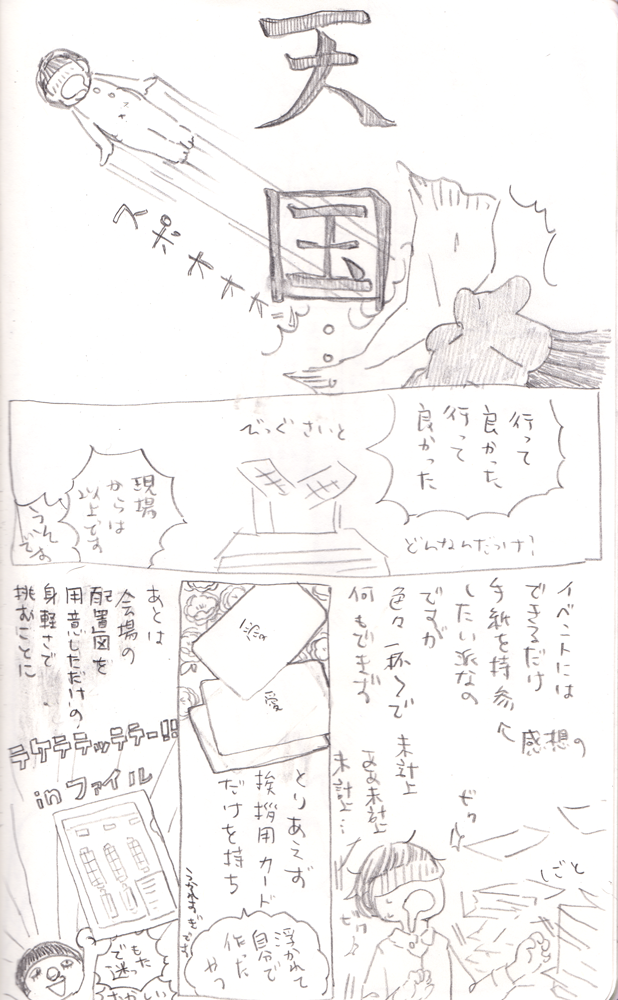 天
国
ペポォォォォ
行って
良かった
行って
良かった
びっぐさいと
どんなんだっけ？
現場
からは
以上です
うそ
です
イベントには
できるだけ
感想の
手紙を持参
したい派なの
ですが
色々一杯一杯で
何もできず
未計上
ああ未計上
未計上…
ゼェ
しごと
ゼェ
愛
とりあえず
挨拶用カード
だけを持ち
つかれすぎです
浮かれて
自分で
作った
やつ
あとは
会場の
配置図を
用意しただけの
身軽さで
挑むことに
テケテテッテテー!!
in ファイル